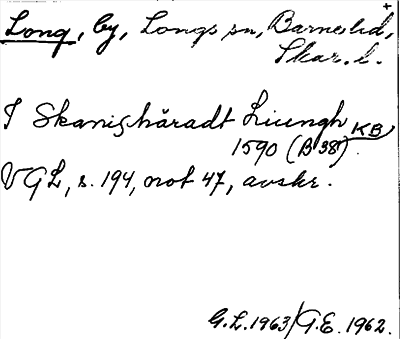 +
Long, by, Longs sn, Barne hd,
Skar. l.
I Skanishäradt Liungh KB
1590 (B 38).
VGL, s. 194, not 47, avskr.
G.L. 1963/G.E. 1962.